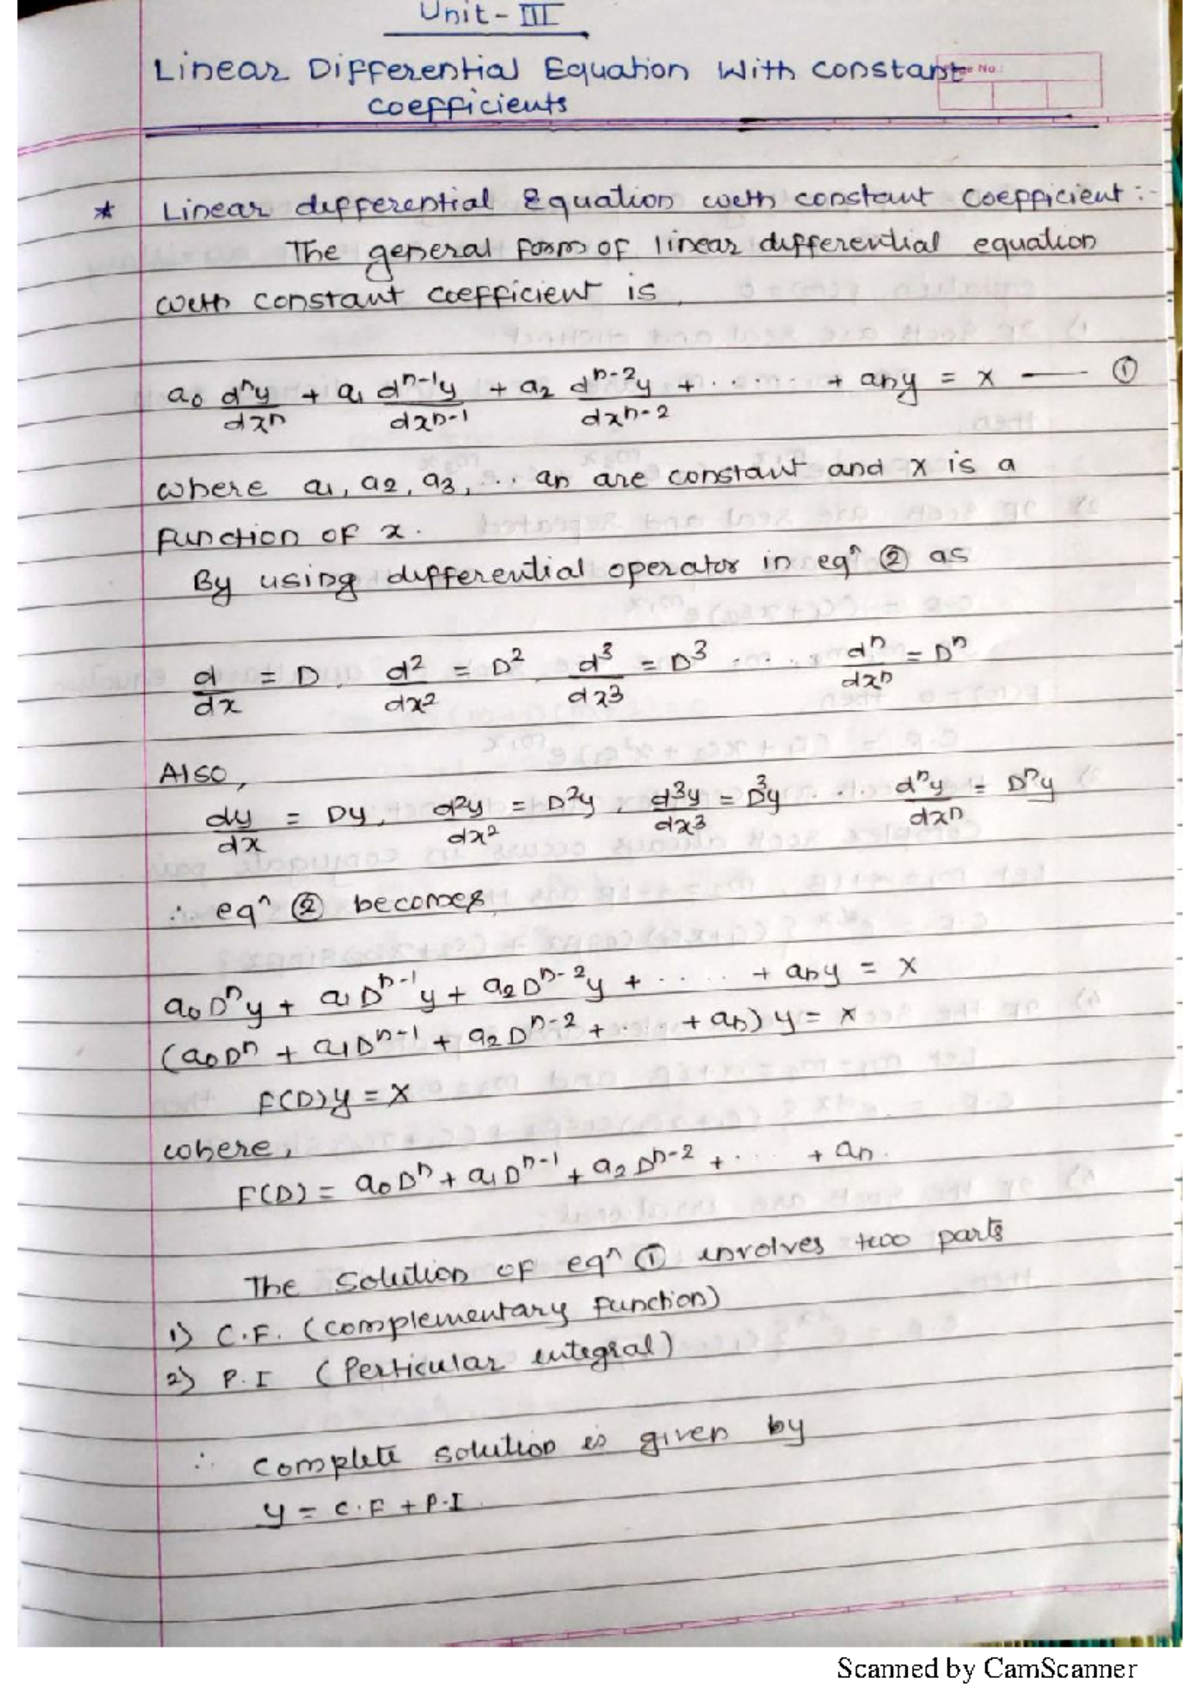 Unit - III
Linear Differential Equation With constant
coefficients
No.:
* Linear differential Equation with constant coefficient :-
The general form of linear differential equation
with constant coefficient is,
a₀ dⁿy/dxⁿ + a₁ dⁿ⁻¹y/dxⁿ⁻¹ + a₂ dⁿ⁻²y/dxⁿ⁻² + ..... + aₙy = x — ①
where a₁, a₂, a₃, .. aₙ are constant and x is a
function of x.
By using differential operator in eqⁿ ② as
d/dx = D, d²/dx² = D², d³/dx³ = D³ .... dⁿ/dxⁿ = Dⁿ
Also,
dy/dx = Dy, d²y/dx² = D²y, d³y/dx³ = D³y ... dⁿy/dxⁿ = Dⁿy
∴ eqⁿ ② becomes,
a₀Dⁿy + a₁Dⁿ⁻¹y + a₂Dⁿ⁻²y + .... + aₙy = x
(a₀Dⁿ + a₁Dⁿ⁻¹ + a₂Dⁿ⁻² + ... + aₙ) y = x
F(D)y = x
where,
F(D) = a₀Dⁿ + a₁Dⁿ⁻¹ + a₂Dⁿ⁻² + ... + aₙ.
The solution of eqⁿ ① involves two parts
1) C.F. (complementary function)
2) P.I (Perticular integral)
∴ complete solution is given by
y = C.F + P.I.
Scanned by CamScanner